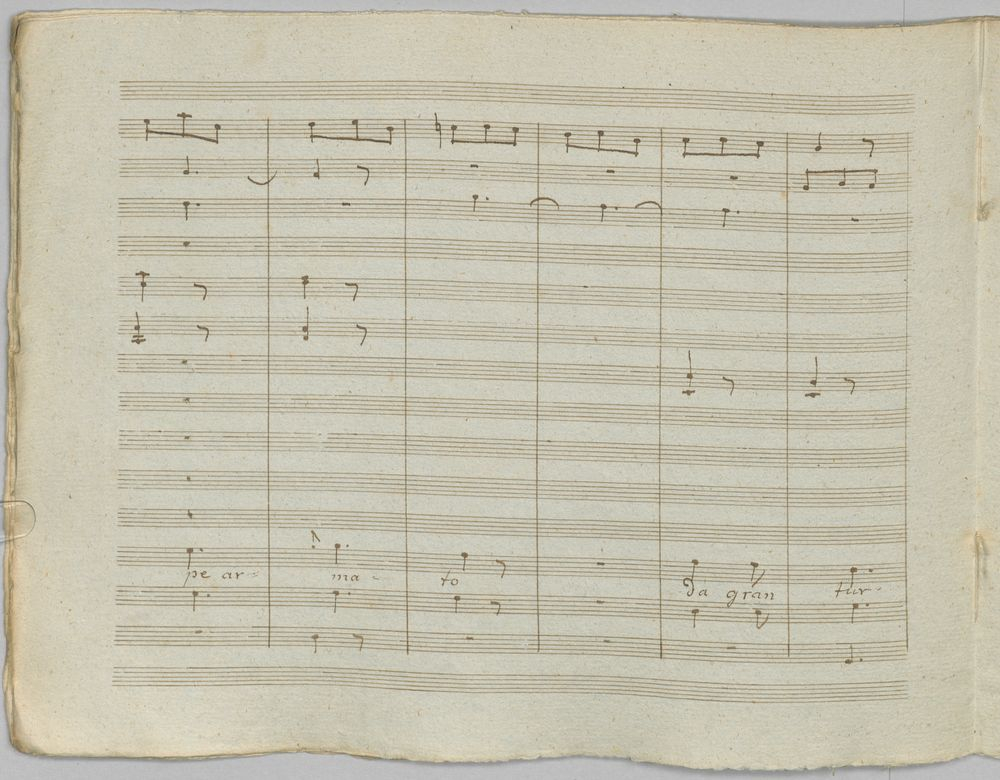 pe ar= ma- to da gran tur-